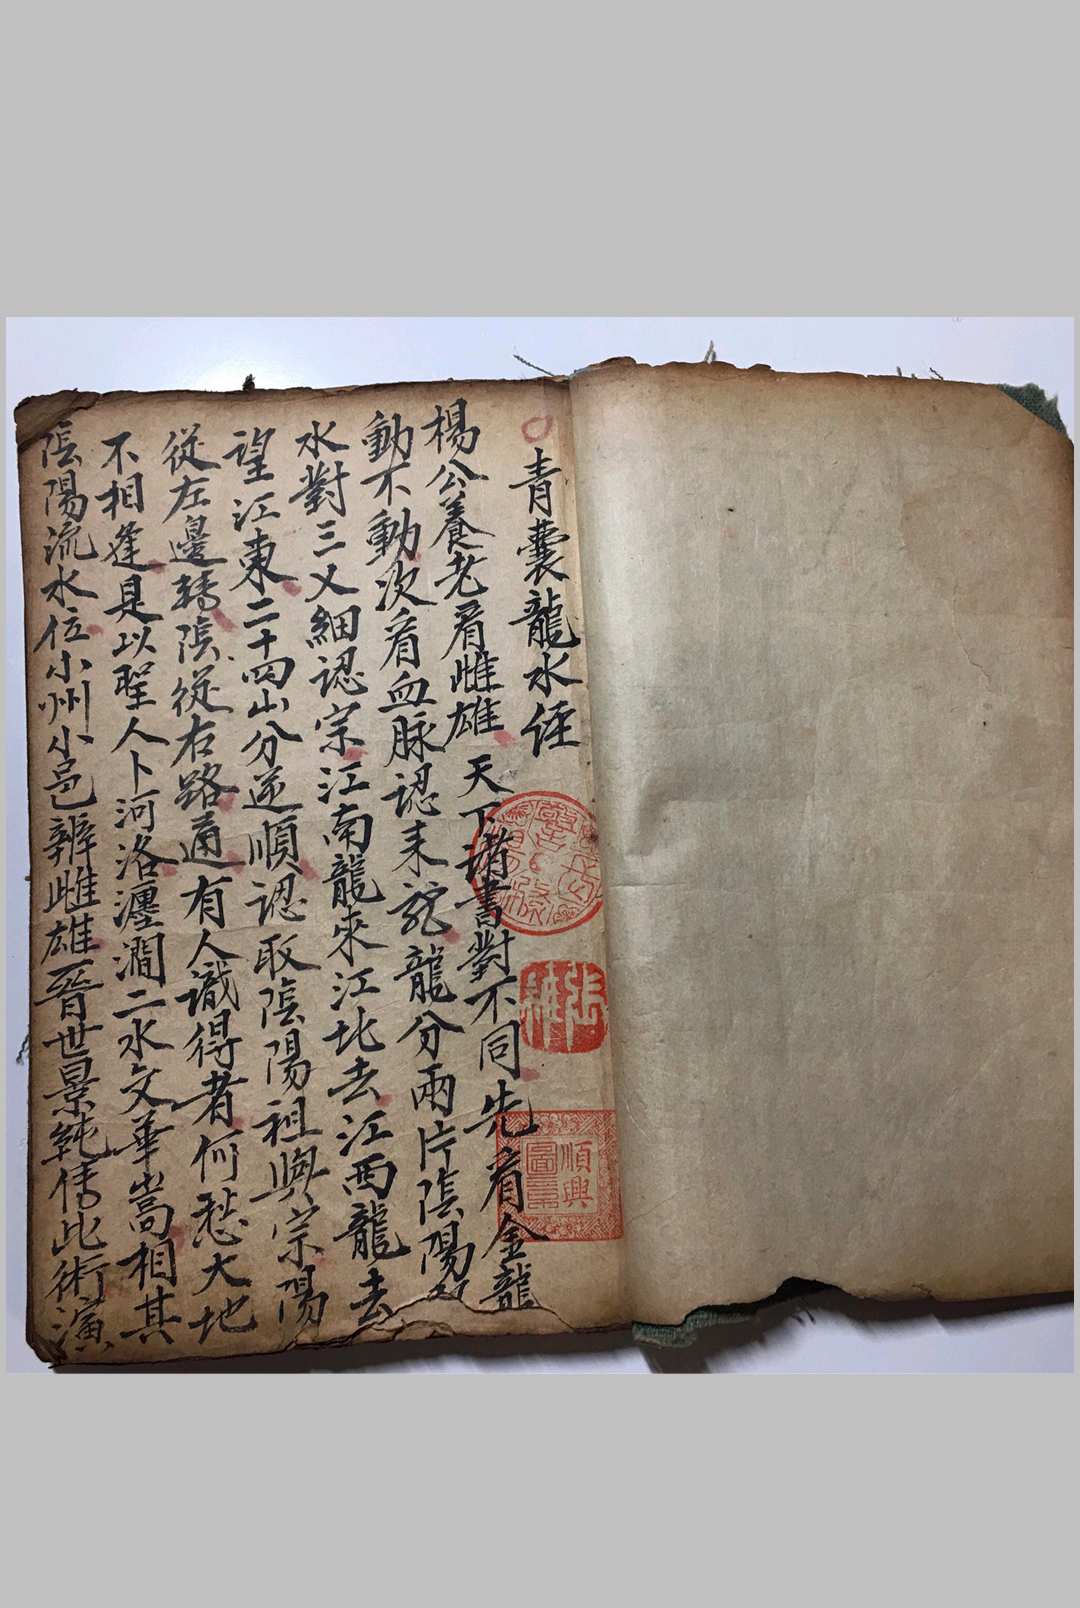 青囊龍水經
楊公養老看雌雄天下諸書對不同先看金龍
動不動次看血脉認耒龍龍分兩片陰陽取
水對三叉細認宗江南龍來江北去江西龍去
望江東二十四山分逆順認取陰陽祖與宗陽
從左邊轉陰從右路通有人識得者何愁大地
不相逢是以聖人卜河洛瀍澗二水文華嵩相其
陰陽流水位小州小邑辨雌雄晋世景純傳此術演
順興
圖章